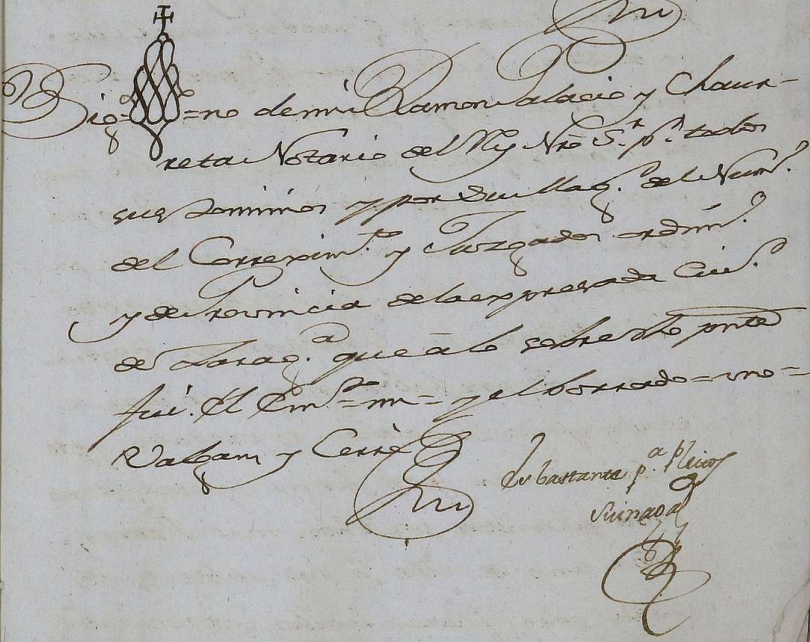 Sig=no de mi Ramon Palacio y Chaur-
reta Notario del Rey Nro Sr. pr. todos
sus Dominios y por Su Mag. del Num.
del Correximto. y Juzgados ordin.
y de Provincia de la expresada Ciu.
de Zarag.a que a lo sobredho pnte
fui. El Em.do = m = y el borrado = mo =
Valgan y Cerré
Es bastante p.a pleitos